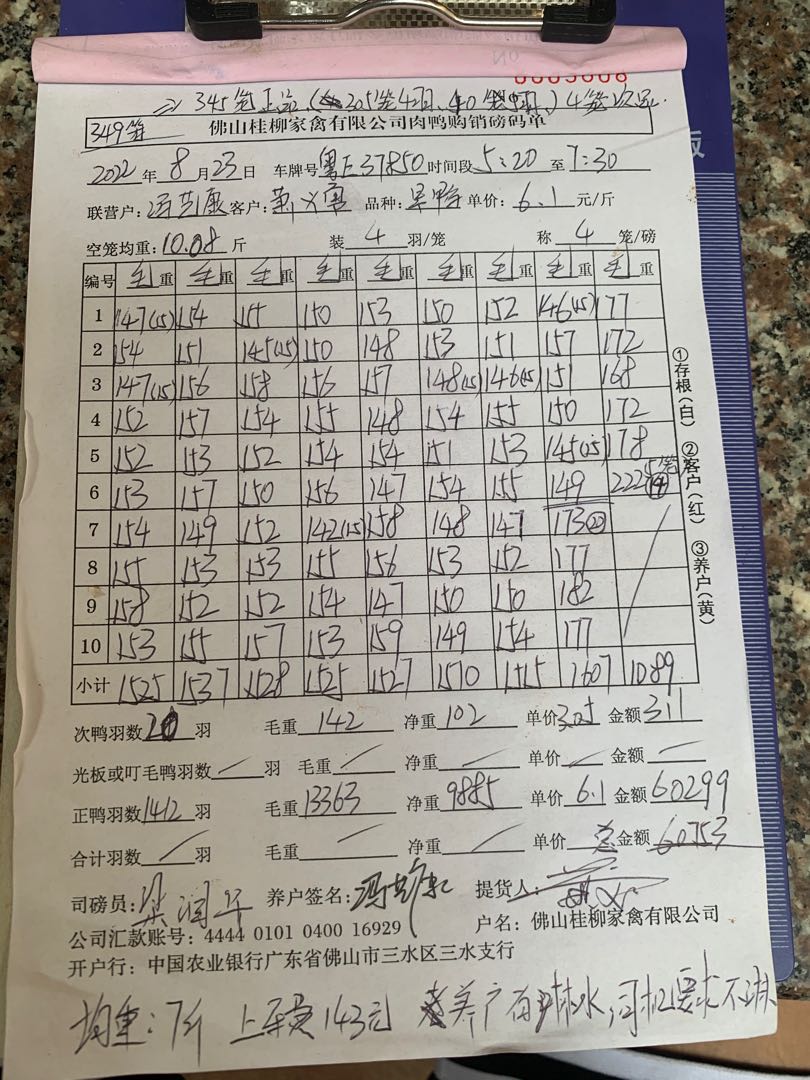 0005008
⇒ 345笼正品(305笼4羽、40笼5羽、)4笼次品.
349笼 佛山桂柳家禽有限公司肉鸭购销磅码单
2022 年 8 月 23 日 车牌号 粤E37850 时间段 5:20 至 7:30
联营户: 客户: 品种: 单价: 6.1 元/斤
空笼均重: 10.08 斤 装 4 羽/笼 称 4 笼/磅
编号 毛重 毛重 毛重 毛重 毛重 毛重 毛重 毛重 毛重
1 147(15) 154 155 150 153 150 152 146(15) 177
2 154 151 145(15) 150 148 153 151 157 172
3 147(15) 156 158 156 157 148(15) 146(15) 151 168
4 152 157 154 155 148 154 155 150 172
5 152 153 152 154 154 151 153 145(15) 178
6 153 157 150 156 147 154 155 149 222 5笼 (19)
7 154 149 152 142(15) 158 148 147 173(20)
8 155 153 153 155 156 153 152 177
9 158 152 152 154 147 150 150 182
10 153 155 157 153 159 149 154 177
小计 1525 1537 1528 1525 1527 1510 1515 1607 1089
次鸭羽数 20 羽 毛重 142 净重 102 单价 3.05 金额 311
光板或叮毛鸭羽数 羽 毛重 净重 单价 金额
正鸭羽数 1412 羽 毛重 13363 净重 9885 单价 6.1 金额 60299
合计羽数 羽 毛重 净重 单价 总 金额 60753
司磅员: 梁润华 养户签名: 提货人:
公司汇款账号: 4444 0101 0400 16929 户名: 佛山桂柳家禽有限公司
开户行: 中国农业银行广东省佛山市三水区三水支行
均重: 7斤 上车费 143元 养户有淋水,司机要求不淋
①存根(白) ②客户(红) ③养户(黄)